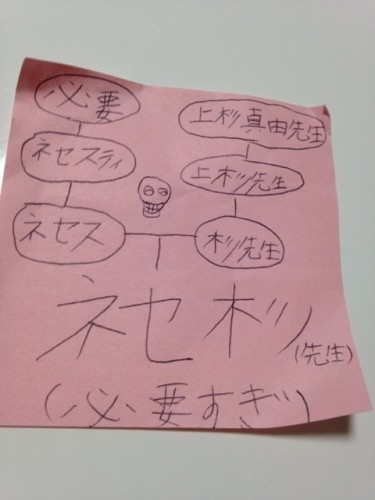 必要
上杉真由先生
ネセスティ
上杉先生
ネセス
杉先生
ネセ杉
(先生)
(必要すぎ)